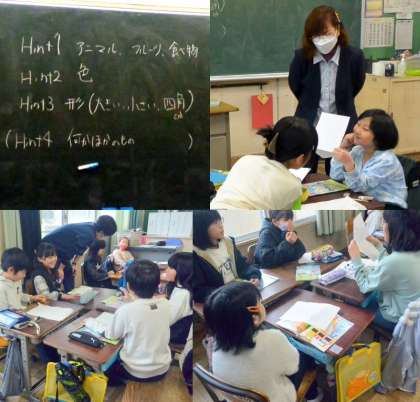 Hint1 アニマル、フルーツ、食べ物
Hint2 色
Hint3 形(大きい、小さい、四角
(Hint4 何かほかのもの )